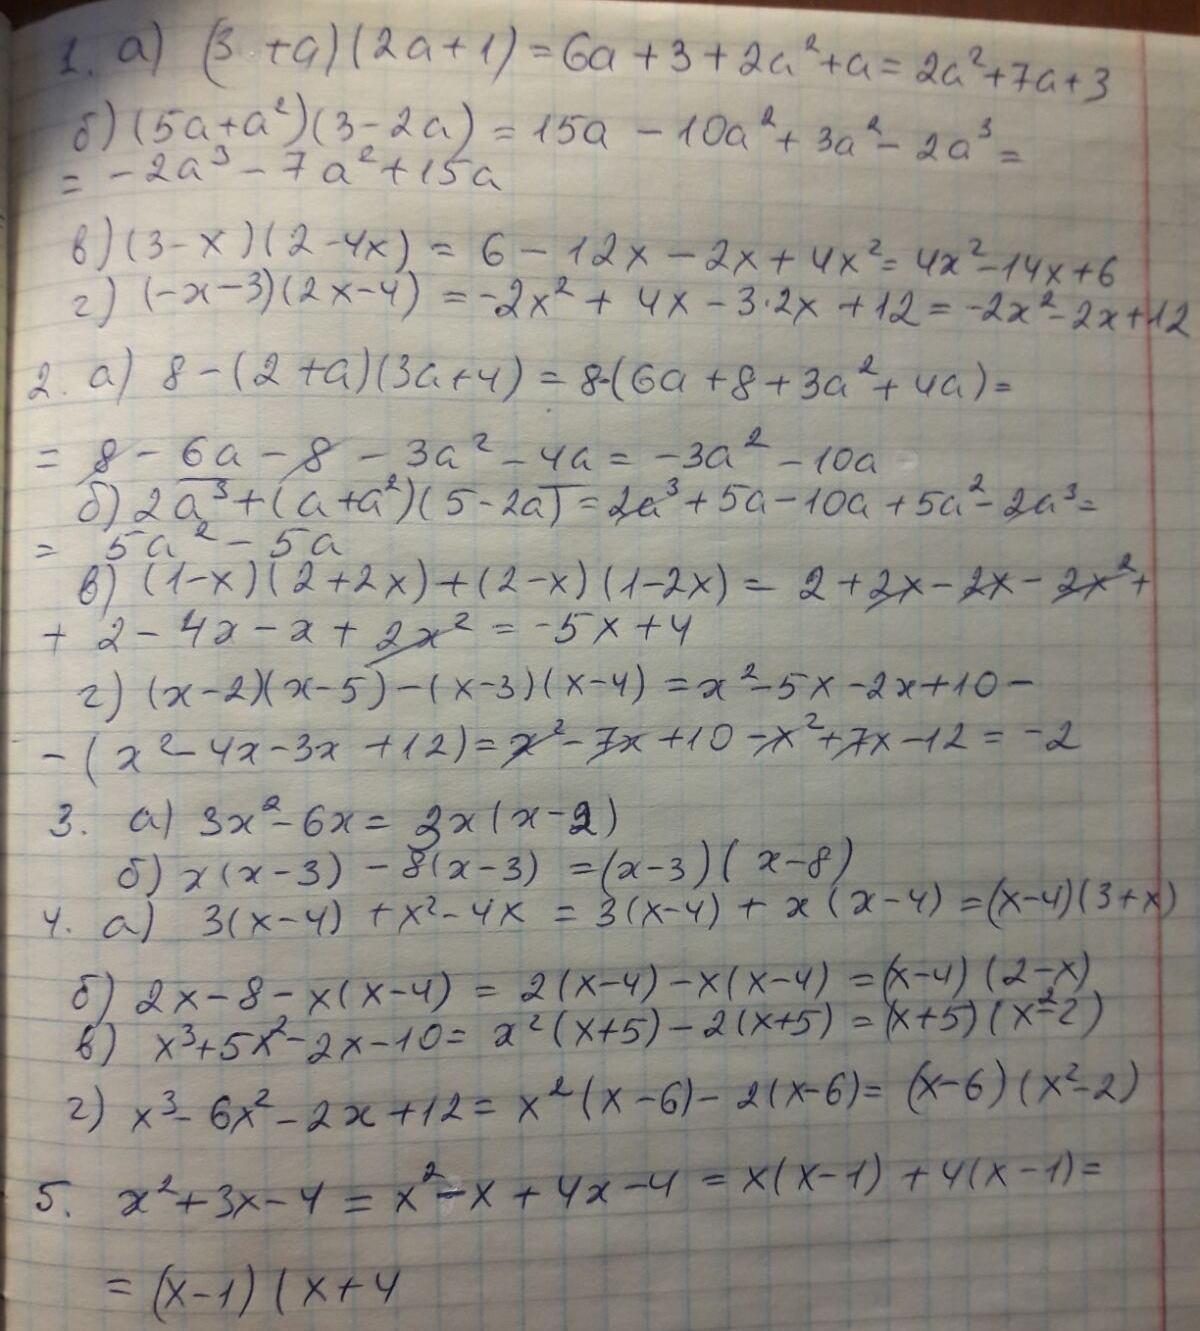 1. а) (3 +a)(2a+1)=6a+3+2a²+a=2a²+7a+3
б)(5a+a²)(3-2a)=15a-10a²+3a²-2a³=
=-2a³-7a²+15a
в)(3-x)(2-4x)=6-12x-2x+4x²=4x²-14x+6
г)(-x-3)(2x-4)=-2x²+4x-3·2x+12=-2x²-2x+12
2. а) 8-(2+a)(3a+4)=8-(6a+8+3a²+4a)=
=8-6a-8-3a²-4a=-3a²-10a
б)2a³+(a+a²)(5-2a)=2a³+5a-10a+5a²-2a³=
= 5a²-5a
в) (1-x)(2+2x)+(2-x)(1-2x)=2+2x-2x-2x²+
+2-4x-x+2x²=-5x+4
г) (x-2)(x-5)-(x-3)(x-4)=x²-5x-2x+10-
-(x²-4x-3x+12)=x²-7x+10-x²+7x-12=-2
3. а) 3x²-6x=3x(x-2)
б) x(x-3)-8(x-3)=(x-3)(x-8)
4. а) 3(x-4)+x²-4x=3(x-4)+x(x-4)=(x-4)(3+x)
б) 2x-8-x(x-4)=2(x-4)-x(x-4)=(x-4)(2-x)
в) x³+5x²-2x-10=x²(x+5)-2(x+5)=(x+5)(x²-2)
г) x³-6x²-2x+12=x²(x-6)-2(x-6)=(x-6)(x²-2)
5. x²+3x-4=x²-x+4x-4=x(x-1)+4(x-1)=
=(x-1)(x+4